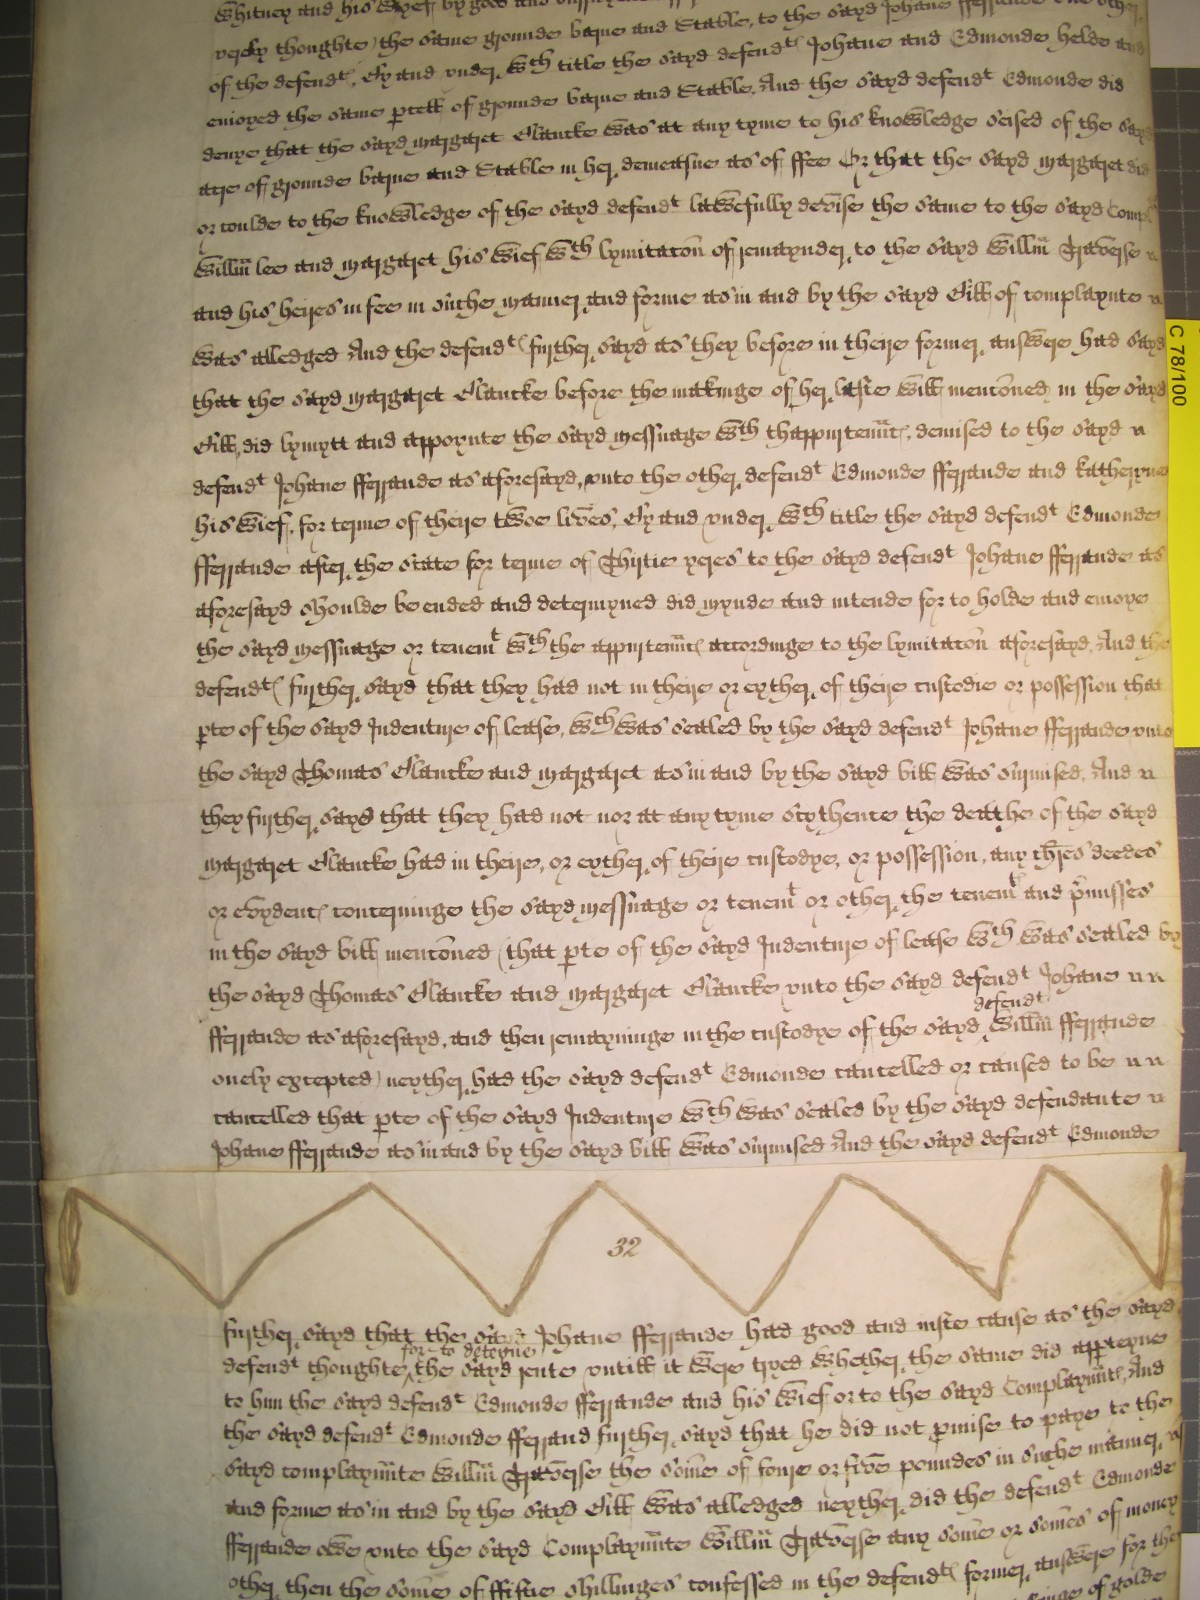 Whitney and his Wyef by good and
verely thoughte) the same grounde barne and Stable, to the sayd Johane fferrande one other
of the defendtes, By and vnder wch title the sayd defendtes Johane and Edmonde helde and
enioyed the same pcell of grounde barne and Stable. And the sayd defendt Edmonde did
denye that the sayd margaret Clancke was at any tyme to his knowledge seised of the sayd
acre of grounde barne and Stable in her demeasne as of ffee Or that the sayd margaret did
or coulde to the knowledge of the sayd defendt lawefully devise the same to the sayd Compl
Willm lee and margaret his wief wth lymitacon of remaynder, to the sayd Willm Traverse
and his heires in fee in suche manner, and forme as in and by the sayd Bill of complaynte
was alledged And the defendtes further sayd as they before in theire former, answere had sayd
that the sayd margaret Clancke before the makinge of her, laste will mencioned in the sayd
Bill, did lymytt and appoynte the sayd messuage wth thappurtenntes, demised to the sayd
defendt Johane fferrande as aforesayd, vnto the other, defendt Edmonde fferrande and katheryne
his wief, for terme of theire twoe lives, By and vnder, wch title the sayd defendt Edmonde
fferrande after, the state for terme of Thirtie yeres to the sayd defendt Johane fferrande as
aforesayd shoulde be ended and determyned did mynde and intende for to holde and enioye
the sayd messuage or tenemt wth the appurtenntes accordinge to the lymitacon aforesayd. And the
defendtes further, sayd that they had not in theire or eyther, of theire custodie or possession that
pte of the sayd Indenture of lease, wch was sealed by the sayd defendt Johane fferrande vnto
the sayd Thomas Clancke and margaret as in and by the sayd bill was surmised. And
they further, sayd that they had not nor at any tyme sythence the deathe of the sayd
margaret Clancke had in theire, or eyther, of theire custodye, or possession, any chres deedes
or evydences concerninge the sayd messuage or tenemt or other, the tenemtes and pmisses
in the sayd bill mencioned (that pte of the sayd Indenture of lease wch was sealed by
the sayd Thomas Clancke and margaret Clancke vnto the sayd defendt Johane
defendt
fferrande as aforesayd, and then remayninge in the custodye of the sayd, Willm fferrande
onely excepted) neyther, had the sayd defendt Edmonde cancelled or caused to be
cancelled that pte of the sayd Indenture wch was sealed by the sayd defendante
Johane fferrande as in and by the sayd bill was surmised And the sayd defendt Edmonde
32
further, sayd that the sayd Johane fferrande had good and iuste cause as the sayd
for to deteyne
defendt thoughte, the sayd rente vntill it were tryed whether, the same did appteyne
to him the sayd defendt Edmonde fferrande and his wief or to the sayd Complaynntes, And
the sayd defendt Edmonde fferrand further, sayd that he did not pmise to paye to the
sayd complaynnte Willm Traverse the some of foure or five poundes in suche manner,
and forme as in and by the sayd Bill was alledged neyther, did the defendt Edmonde
fferrande owe vnto the sayd Complaynnte Willm Traverse any some or somes of money
other, then the some of ffiftue shillinges confessed in the defendtes former, answere for the
of golde
C 78/100